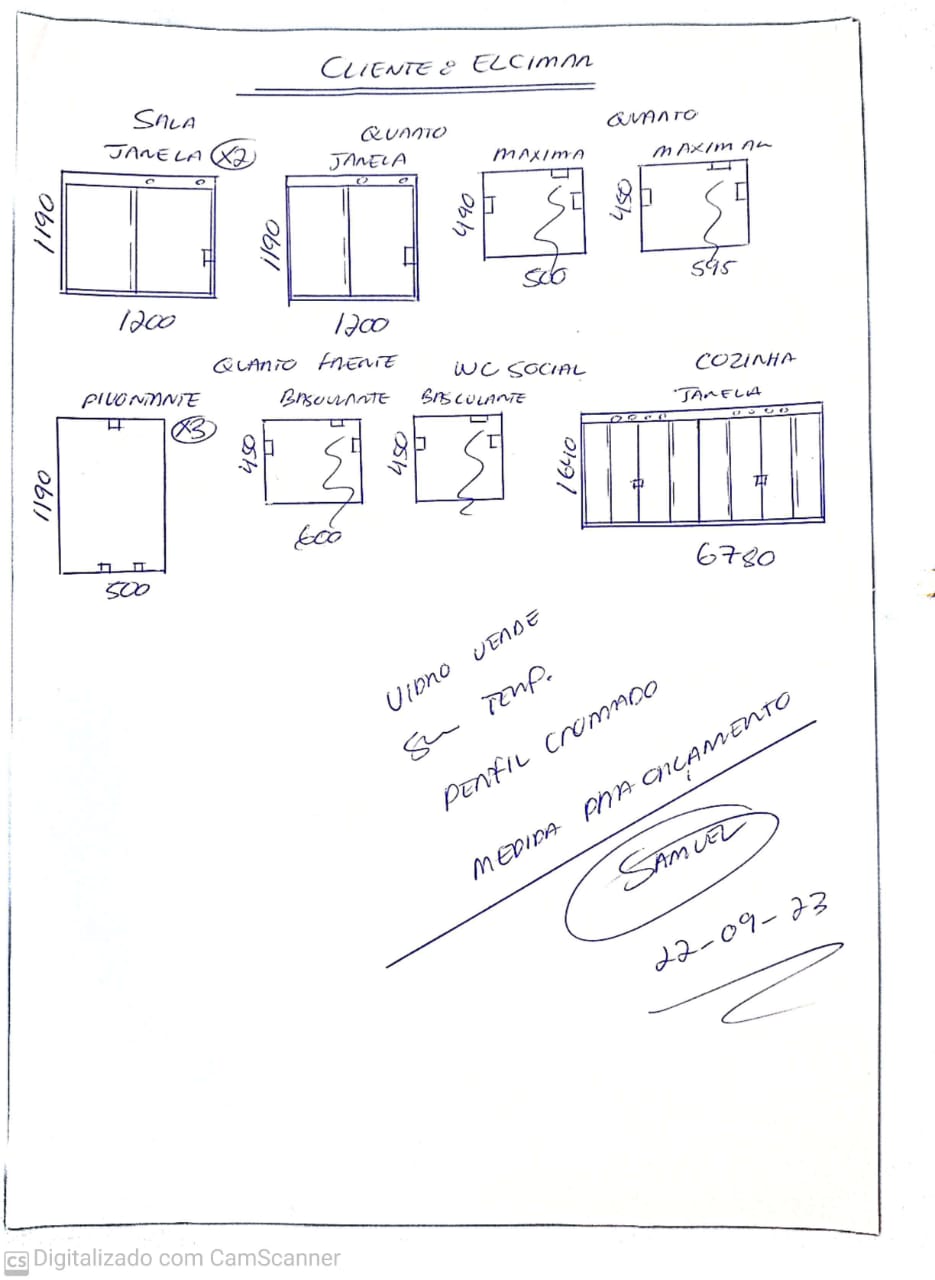 CLIENTE: ELCIMAR
SALA
JANELA X2
1190
1200
QUARTO
JANELA
1190
1200
QUARTO
MAXIMA
490
500
MAXIMAR
450
595
PIVONTANTE
X3
1190
500
QUARTO FRENTE
BASCULANTE
450
600
WC SOCIAL
BASCULANTE
450
COZINHA
JANELA
1640
6780
VIDRO VERDE
TEMP.
PERFIL CROMADO
MEDIDA PARA ORÇAMENTO
SAMUEL
22-09-23
CS Digitalizado com CamScanner